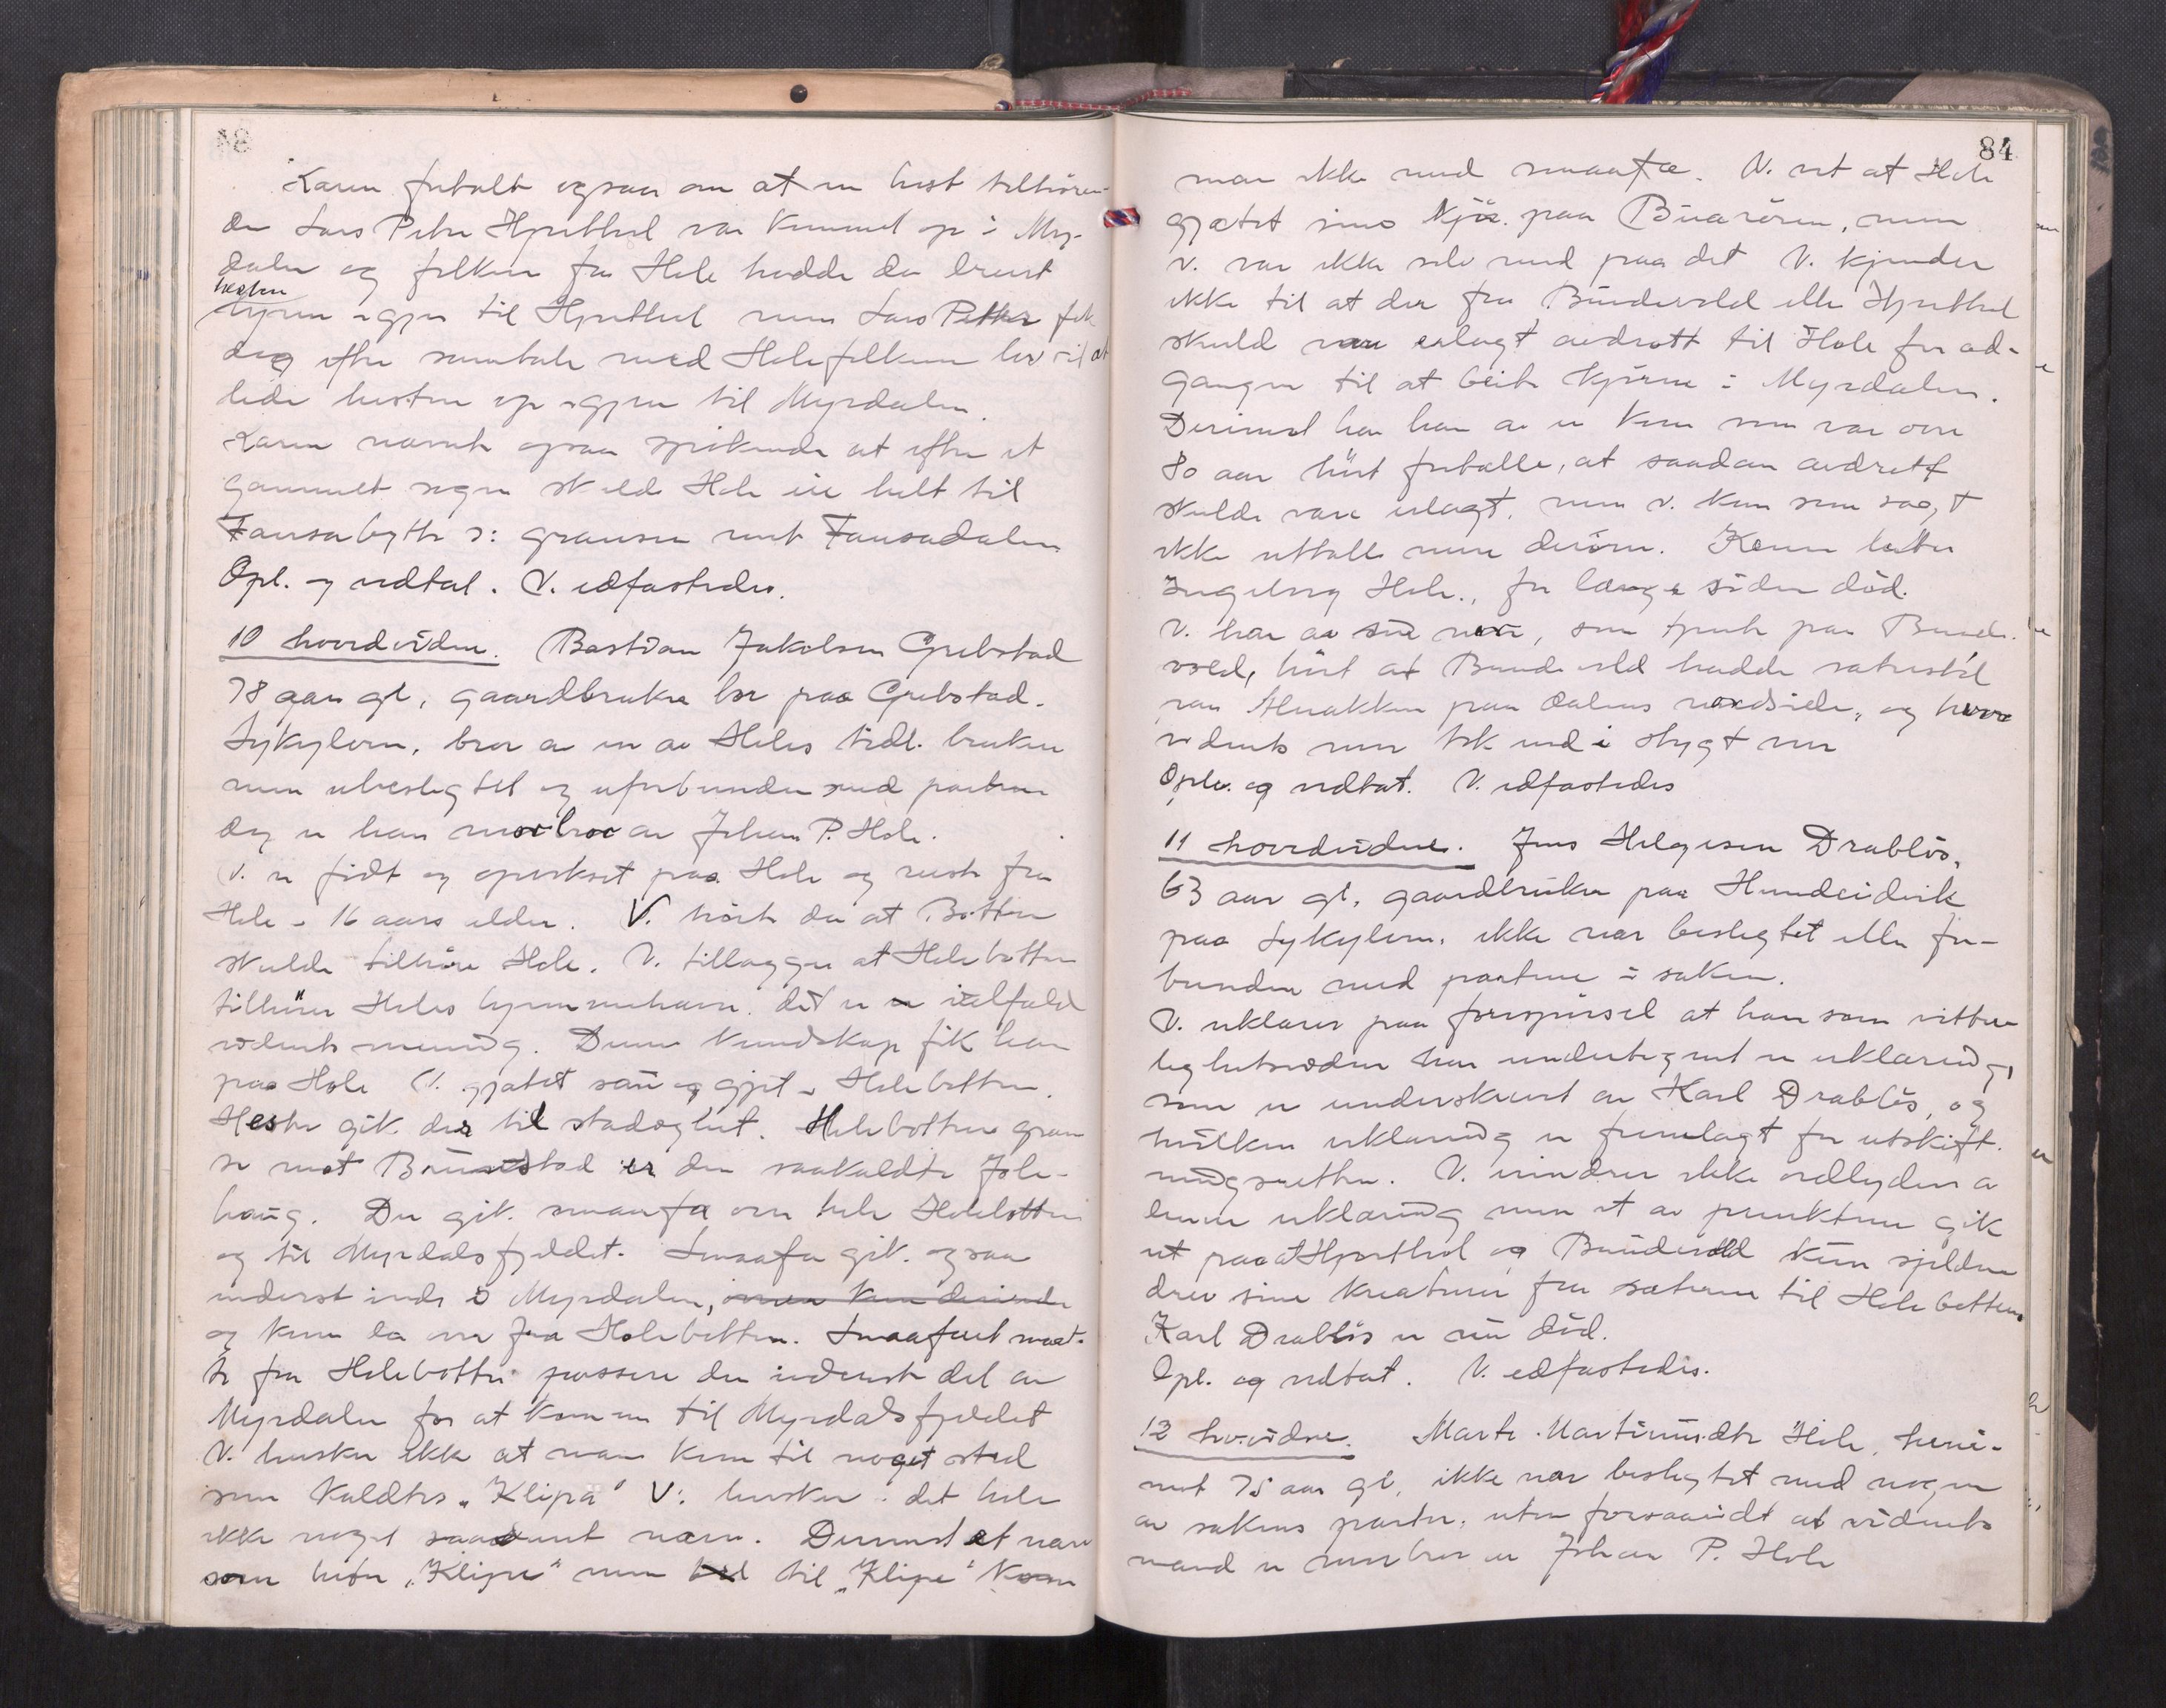 Karen fortalte ogsaa om at en hest tilhören-
de Lars Petter Hjorthol var kommet op i Myr-
dalen og folkene fra Hole hadde da drevet
hesten
igjen til Hjorthol men Lars Petter fik
dog efter samtale med Holefolkene lov til at
lede hesten op igjen til Myrdalen.
Karen nævnte ogsaa spökende at efter et
gammelt sagn skulde Hole eie helt til
Fausabytte ɔ: grænsen mot Fausadalen
Opl. og vedtat. V. edfæstedes.
10 hovedvidne. Bastian Jakobsen Grebstad
78 aar gl, gaardbruker bor paa Grebstad.
Sykylven, bror av en av Holes tidl. brukere
men ubeslegtet og uforbunden med partene
Dog er han morbror av Johan P. Hole.
V. er födt og opvokset paa Hole og reiste fra
Hole i 16 aars alder. V. hörte da at Botten
skulde tilhöre Hole. V. tillægger at Holebotten
tilhörer Holes hjemmehavn. det er ialfald
vidnets mening. Denne kundskap fik han
paa Hole V. gjætet sau og gjet i Holebotten.
Hester gik der til stadighet. Holebottens græn
se mot Brunstad er den saakaldte Jole-
haug. Der gik smaafæ over hele Holebotten
og til Myrdalsfjeldet. Smaafæ gik ogsaa
inderst inde i Myrdalen, men kun derinde
og kom da over fra Holebotten. Smaafeet maat-
te fra Holebotten passere den inderste del av
Myrdalen for at komme til Myrdalsfjeldet
V. husker ikke at man kom til noget sted
som kaldtes "Klipa" V. husker i det hele
ikke noget saadant navn. Derimot et navn
som heter "Klipe" men til "Klipe" kom
84
man ikke med smaafæ. V. vet at Hole
gjætet sine kjör paa Buarören, men
V. var ikke selv med paa det V. kjender
ikke til at der fra Bundevold eller Hjorthol
skuld være erlagt avdrott til Hole for ad-
gangen til at beite kjörne i Myrdalen.
Derimot har han av en kone som var over
80 aar hört fortalle, at saadan avdrott
skulde være erlagt. men v. kan som sagt
ikke uttalle mere derom. Konen hetter
Ingeborg Hole., for længe siden död.
V. har av sin mor, som tjente paa Bunde-
vold, hört at Bundevold hadde sæterstöl
paa Alnakken paa dalens nordside, og hvor
vidnets mor tok ind i stygt veir
Oplæ. og vedtat. V. edfæstedes
11 hovedvidne. Jens Helgesen Drablös,
63 aar gl. gaardbruker paa Hundeidvik
paa Sykylven. ikke nær beslegtet eller for-
bunden med partene i saken.
V. erklærer paa forespörsel at han som vitter-
lighetsvidne har undertegnet en erklæring,
som er underskrevet av Karl Drablös, og
hvilken erklæring er fremlagt for utskift-
ningsretten. V. erindrer ikke ordlyden av
denne erklæring men et av punktene gik
ut paa at Hjorthol og Bundevold kun sjelden
drev sine kreaturer fra sæterne til Holebotten.
Karl Drablös er nu död.
Opl. og vedtat. V. edfæstedes.
12 hv.vidne. Marte Martinusdtr Hole, heni-
mot 75 aar gl, ikke nær beslegtet med nogen
av sakens parter, uten forsaavidt at vidnets
mand er morbror av Johan P. Hole